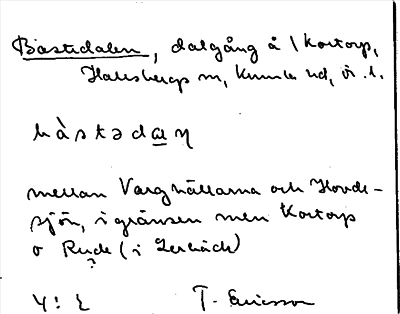 Bastedalen, dalgång å \ Kortorp,
Hallsbergs sn, Kumla hd, Ör. l.
bàstədaɳ
mellan Varghällarna och Hovde-
sjön, i gränsen mellan Kortorp
o Rude (i Lerbäck)
?
T. Ericsson